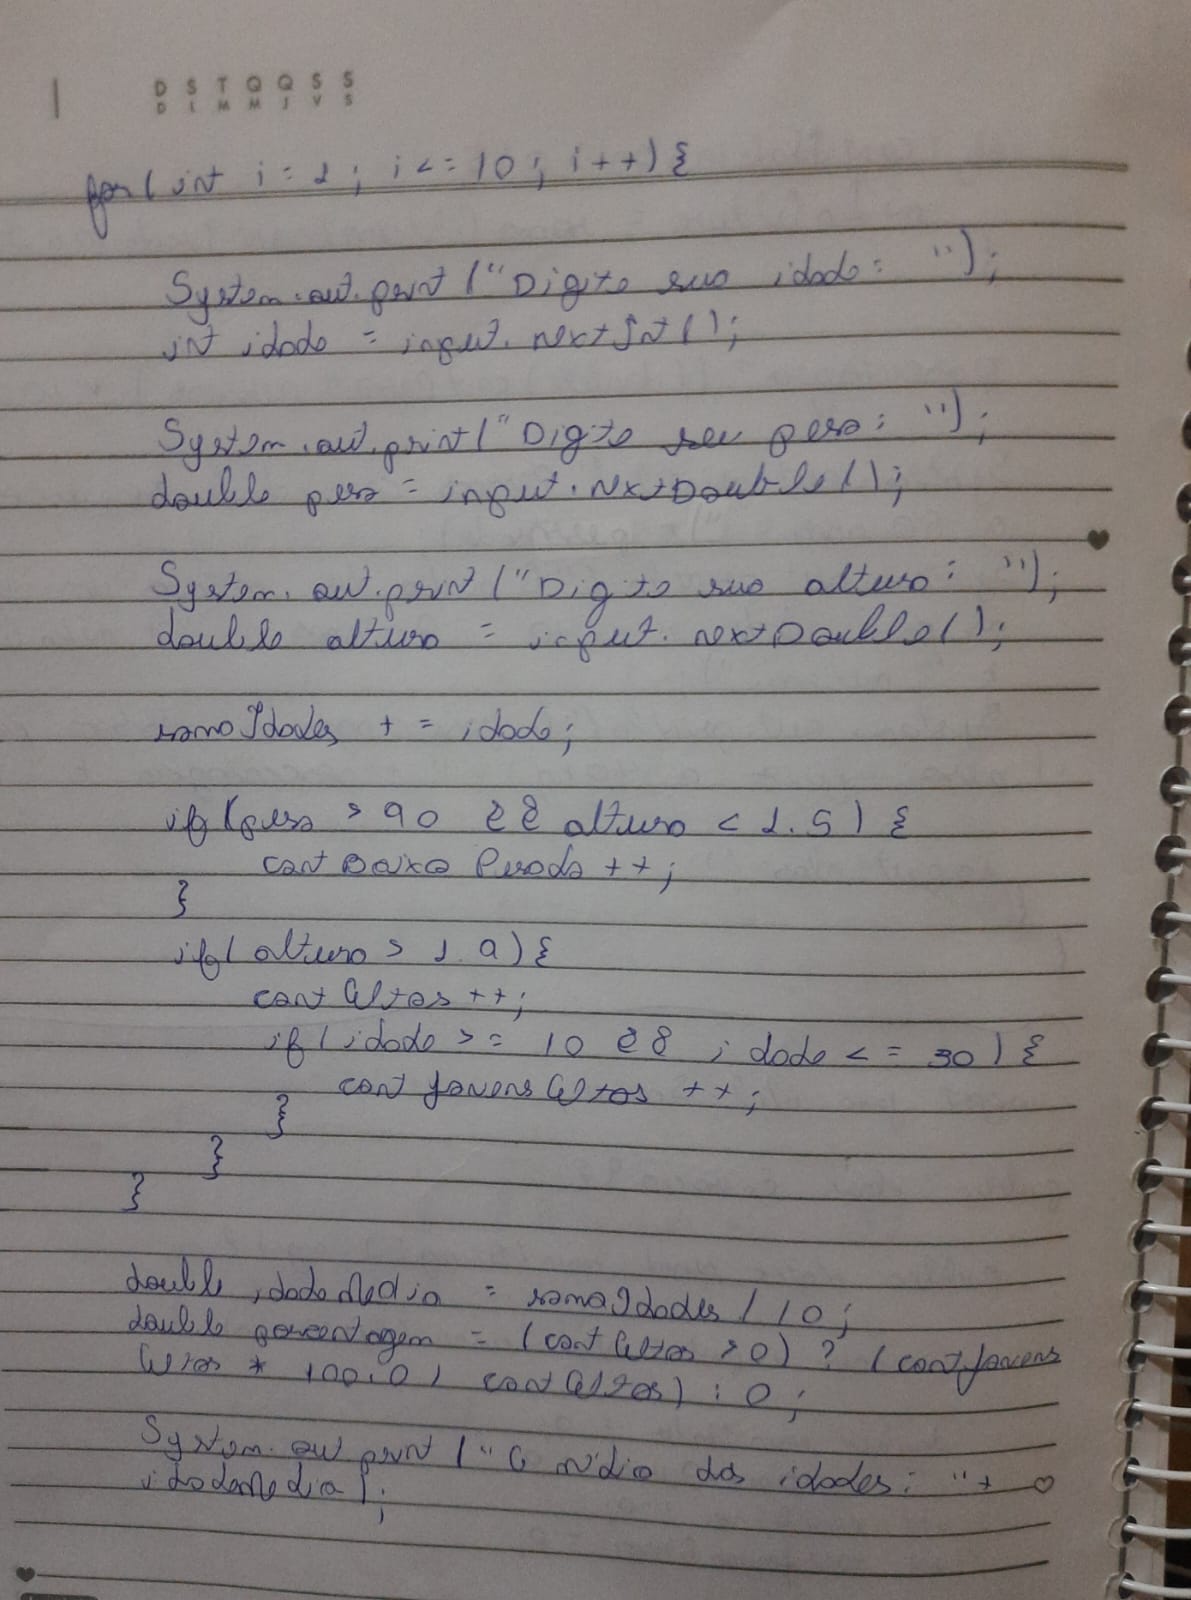 D S T Q Q S S
D L M M J V S
for( int i = 1 ; i <= 10 ; i ++) {
System.out.print ("Digite sua idade: ");
int idade = input.nextInt();
System.out.print("Digite seu peso: ");
double peso = input.NextDouble();
System.out.print ("Digite sua altura: ");
double altura = input.nextDouble();
somaIdades += idade;
if (peso > 90 && altura < 1.5) {
contBaixo Pesado ++;
}
if( altura > 1.9) {
contAltos ++;
if ( idade >= 10 && idade <= 30) {
contJovensAltos ++;
}
}
}
double idadeMedia = somaIdades / 10;
double porcentagem = (contAltos >0) ? (contJovens
Altos * 100.0 / contAltos) : 0;
System.out.print ("A média das idades: "+
idadeMedia);